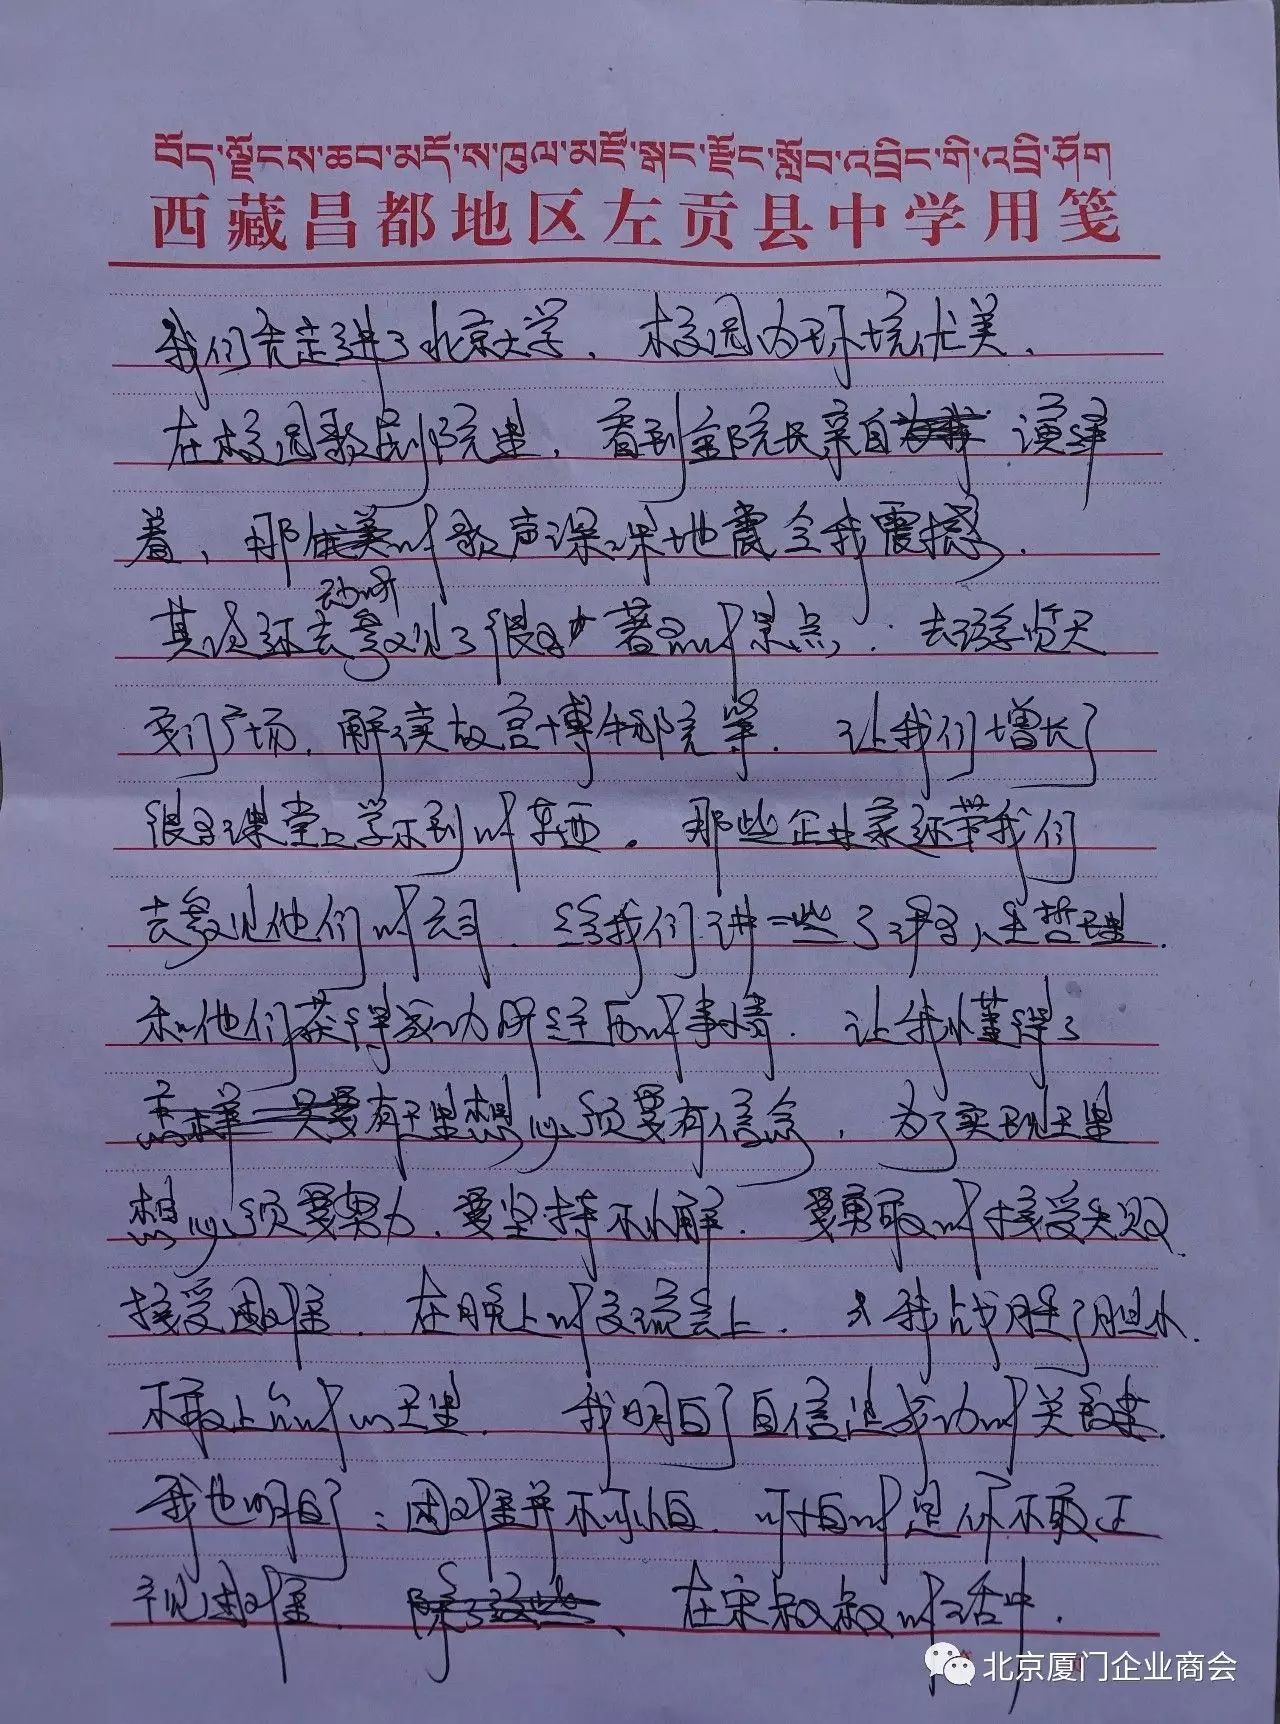 བོད་ལྗོངས་ཆབ་མདོ་ས་ཁུལ་མཛོ་སྒང་རྫོང་སློབ་འབྲིང་གི་འབྲི་ཤོག
西藏昌都地区左贡县中学用笺
我们先走进了北京大学，校园内环境优美，
在校园歌剧院里，看到金院长亲自 演绎
着，那 的歌声深深地震令我震撼，
动听
其次还去参观了很多著名的景点，去游览天
安门广场，解读故宫博物院等，让我们增长了
很多课堂上学不到的东西。那些企业家还带我们
去参见他们的公司，给我们讲一些了许多人生哲理，
和他们获得成功所经历的事情，让我懂得了
有理想必须要有信念，为了实现理
想必须要努力，要坚持不懈，要勇敢的接受失败，
接受困难，在晚上的交流会上，我战胜了胆小，
不敢上台的心理，我明白了自信是成功的关键，
我也明白了：困难并不可怕，可怕的是你不敢正
视困难，除了这些、在宋叔叔的话中，
北京厦门企业商会